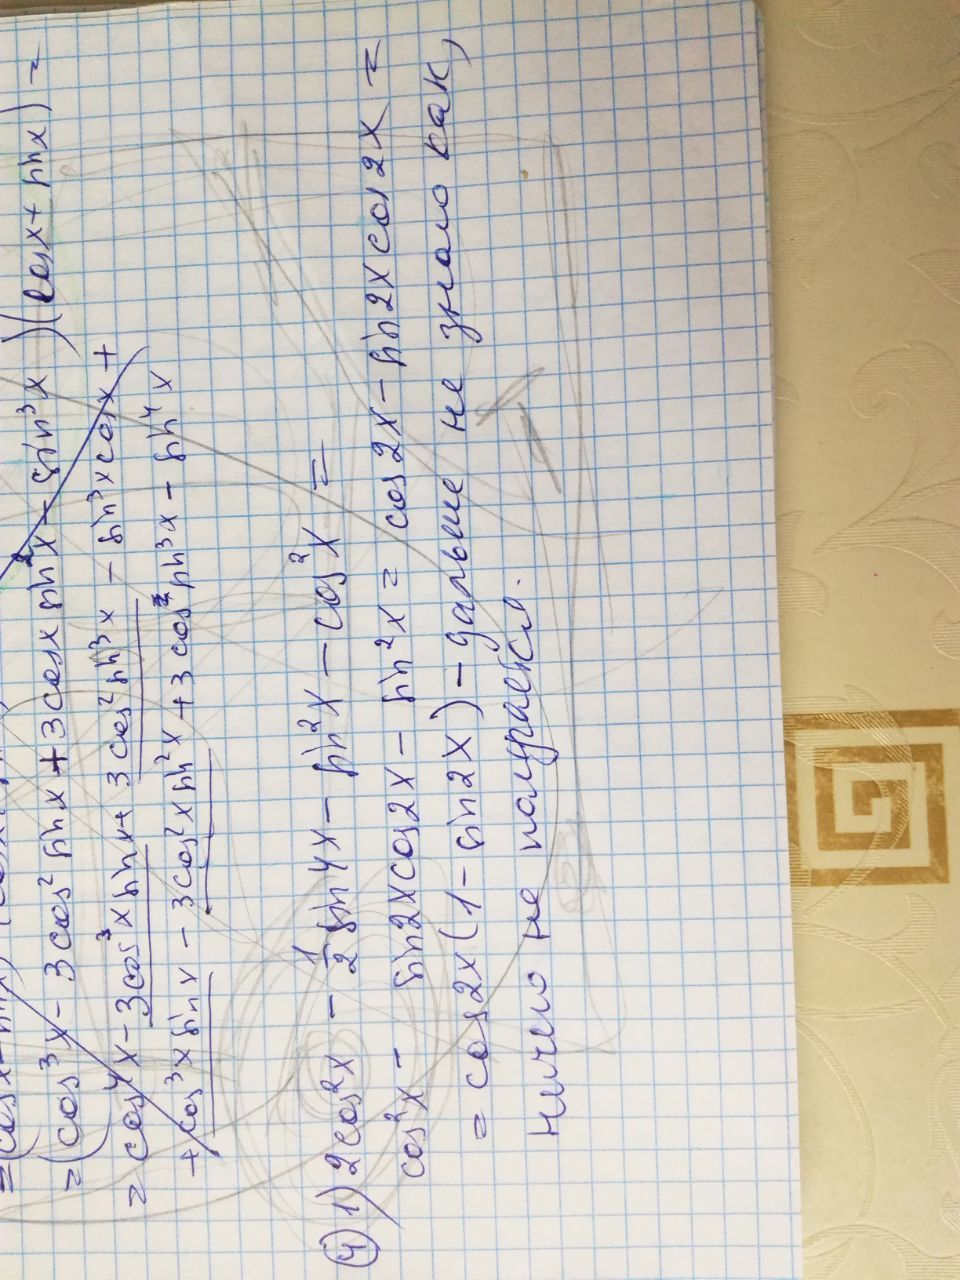 =(cos x - sin x)
=(cos³x - 3cos² sin x + 3cos x sin²x - sin³x)(cos x + sin x) =
= cos⁴x - 3cos³x sin x + 3cos² sin³x - sin³x cos x +
+ cos³x sin x - 3cos²x sin²x + 3cos² sin³x - sin⁴x
④ 1) 2cos²x - 1/2 sin 4x - sin²x - cos²x =
cos²x - sin2x cos2x - sin²x = cos2x - sin2x cos2x =
= cos2x(1 - sin2x) - дальше не знаю как,
ничего не получается.